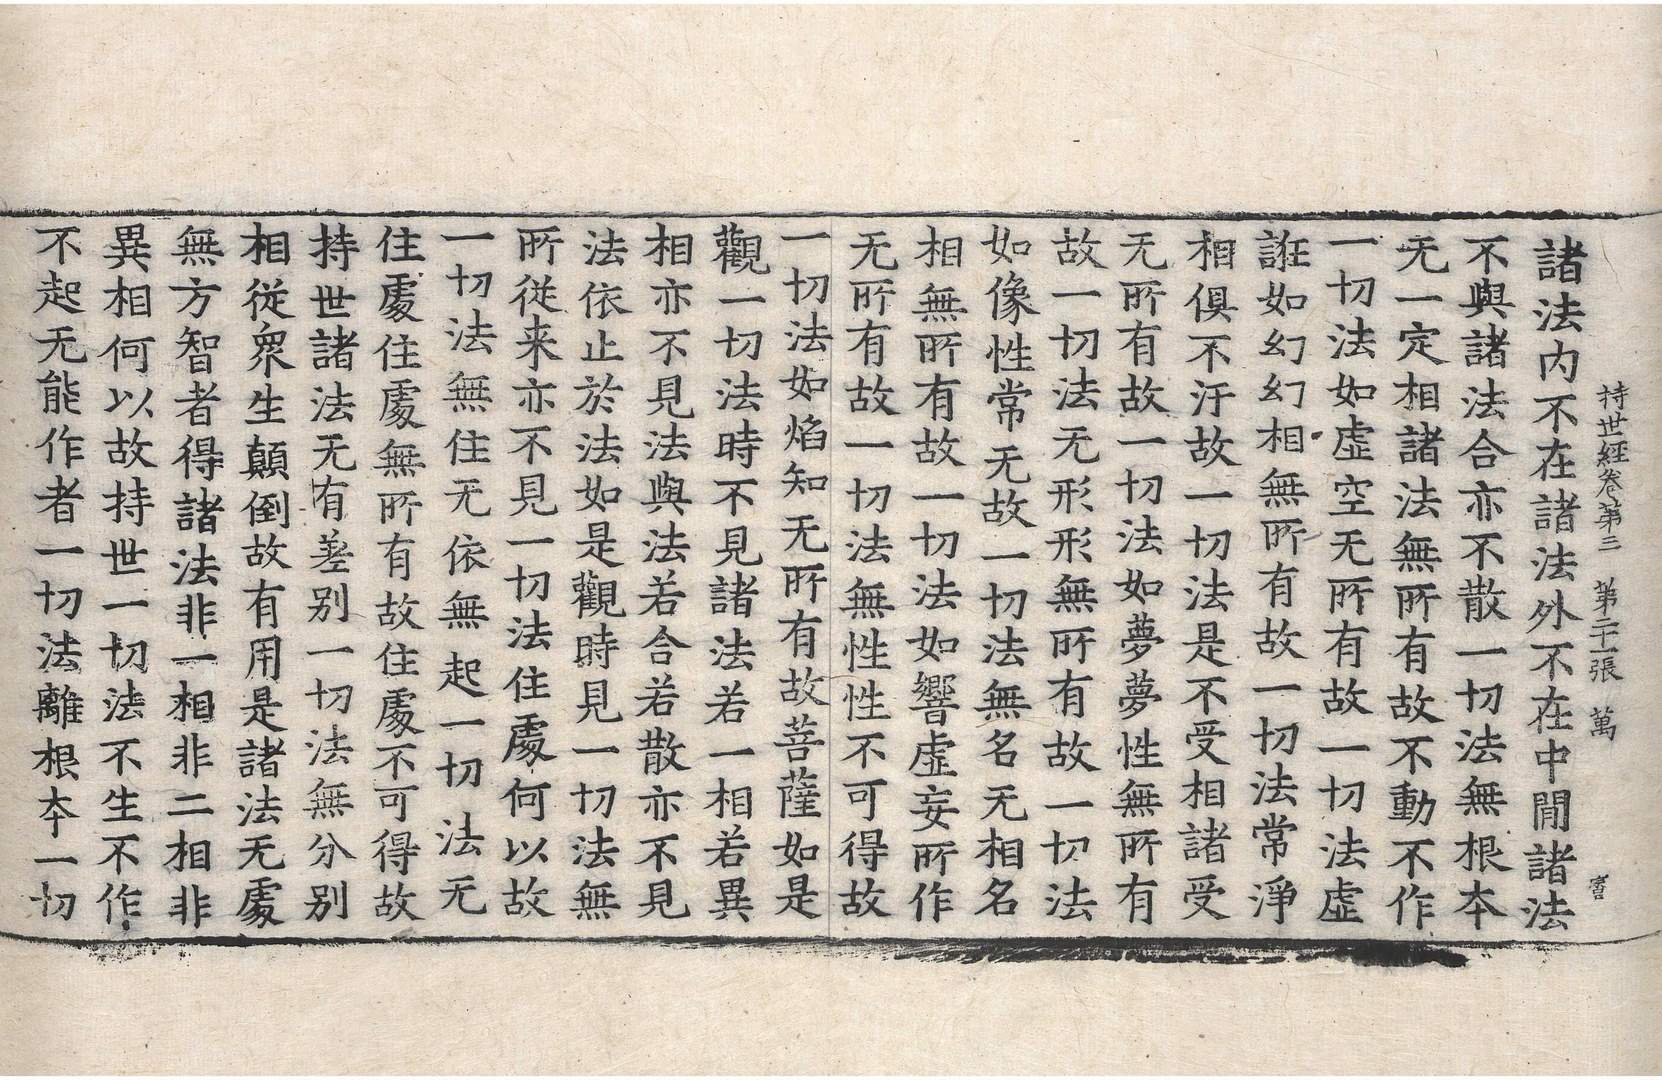 持世經卷第三 第二十一張 萬
諸法內不在諸法外不在中閒諸法
不與諸法合亦不散一切法無根本
无一定相諸法無所有故不動不作
一切法如虛空无所有故一切法虛
誑如幻幻相無所有故一切法常淨
相俱不汙故一切法是不受相諸受
无所有故一切法如夢夢性無所有
故一切法无形形無所有故一切法
如像性常无故一切法無名无相名
相無所有故一切法如響虛妄所作
无所有故一切法無性性不可得故
一切法如焰知无所有故菩薩如是
觀一切法時不見諸法若一相若異
相亦不見法與法若合若散亦不見
法依止於法如是觀時見一切法無
所從来亦不見一切法住處何以故
一切法無住无依無起一切法无
住處住處無所有故住處不可得故
持世諸法无有差别一切法無分别
相從衆生顛倒故有用是諸法无處
無方智者得諸法非一相非二相非
異相何以故持世一切法不生不作
不起无能作者一切法離根本一切